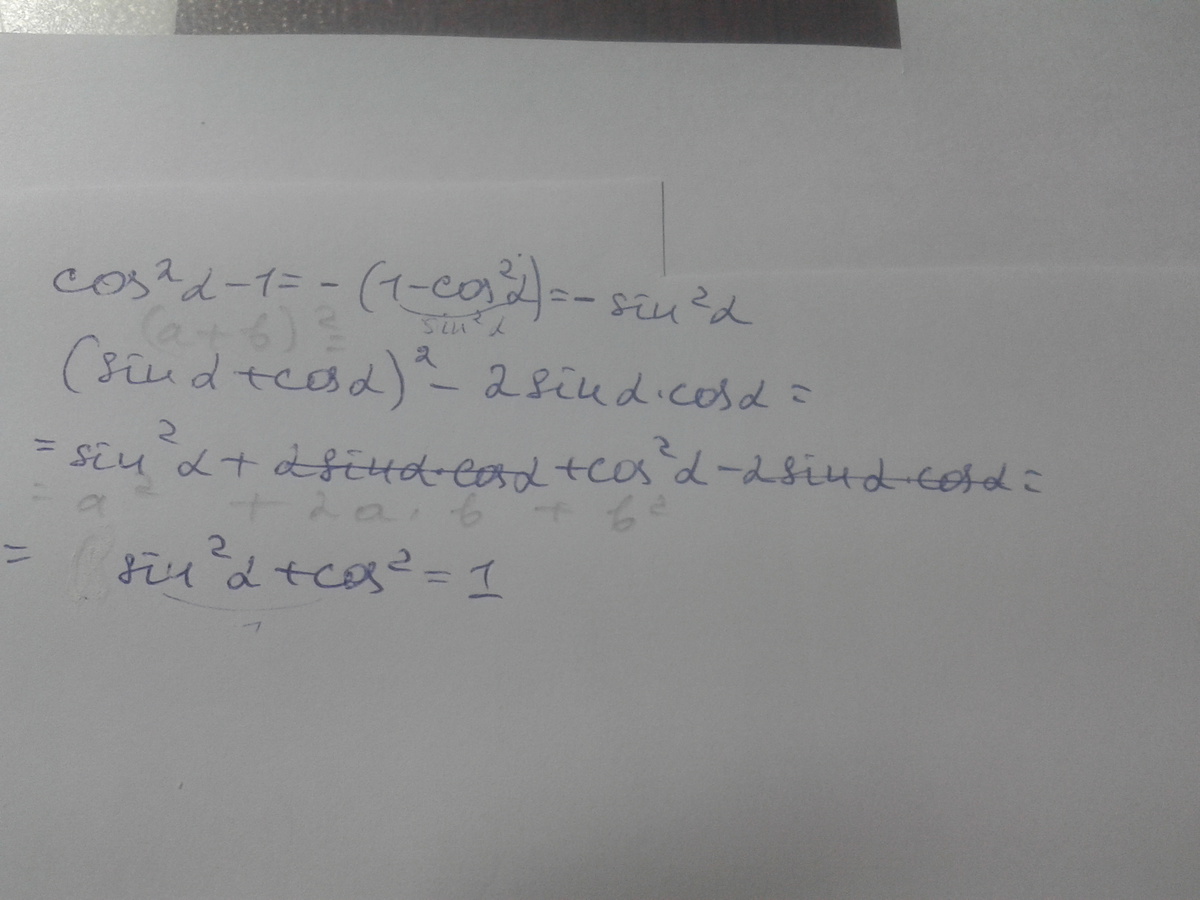 cos²α-1=-(1-cos²α)=-sin²α
sin²α
(a+b)²=
(sinα+cosα)²-2sinα·cosα=
=sin²α+2sinα·cosα+cos²α-2sinα·cosα=
=a²+2a·b+b²
=sin²α+cos²=1
1